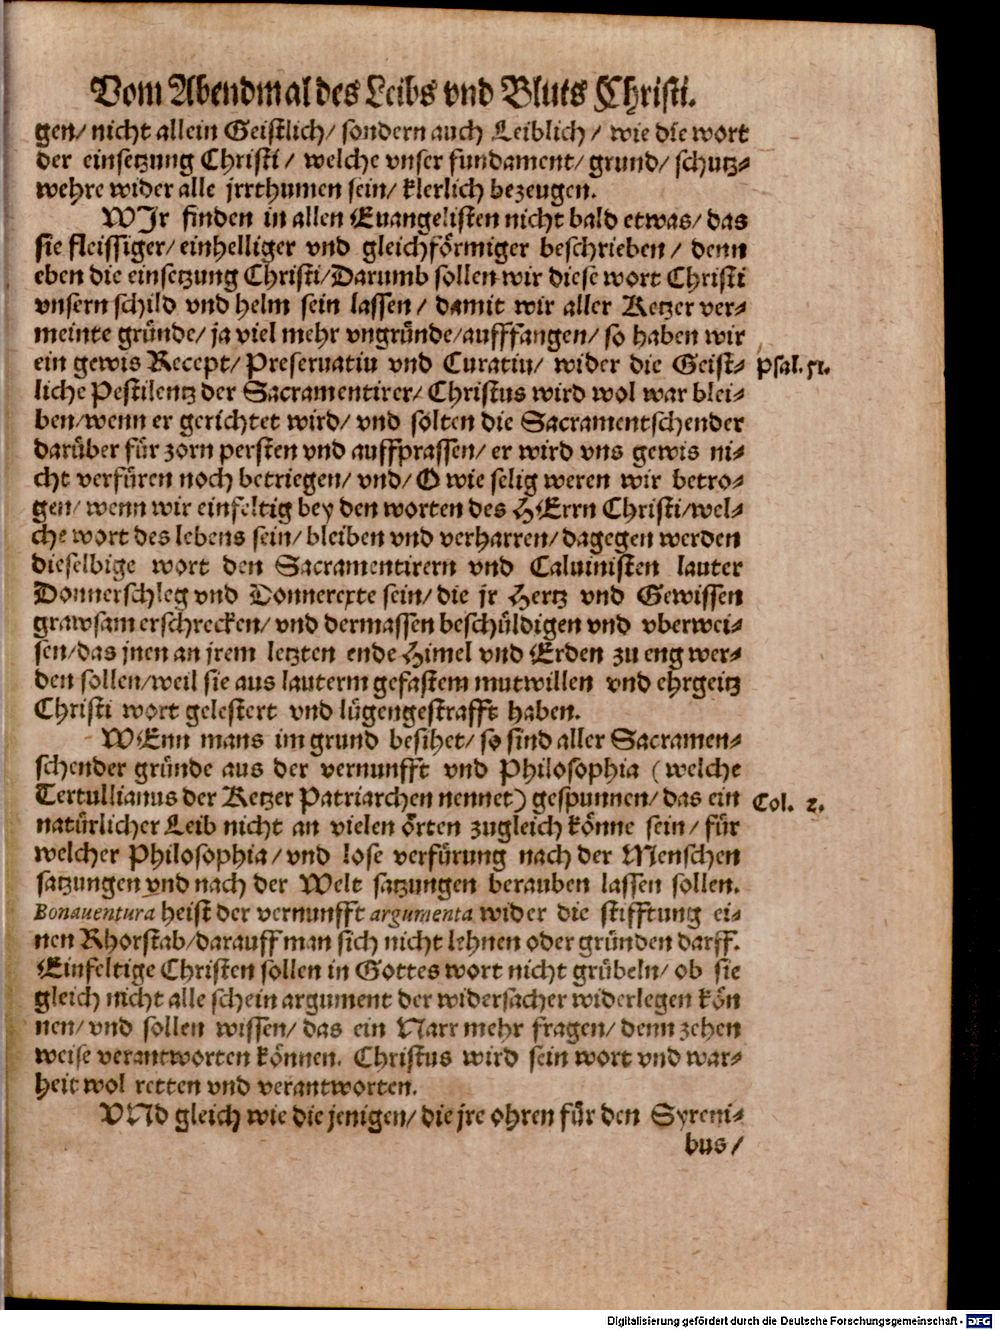 Vom Abendmal des Leibs vnd Bluts Christi.
gen/ nicht allein Geistlich/ sondern auch Leiblich/ wie die wort
der einsetzung Christi/ welche vnser fundament/ grund/ schutz-
wehre wider alle jrrthumen sein/ klerlich bezeugen.
WJr finden in allen Euangelisten nicht bald etwas/ das
sie fleissiger/ einhelliger vnd gleichförmiger beschrieben/ denn
eben die einsetzung Christi/ Darumb sollen wir diese wort Christi
vnsern schild vnd helm sein lassen/ damit wir aller Ketzer ver-
meinte gründe/ ja viel mehr vngründe/ aufffangen/ so haben wir
ein gewis Recept/ Preseruatiu vnd Curatiu/ wider die Geist- Psal. 51.
liche Pestilentz der Sacramentirer/ Christus wird wol war blei-
ben/ wenn er gerichtet wird/ vnd solten die Sacramentschender
darüber für zorn persten vnd auffprassen/ er wird vns gewis ni-
cht verfüren noch betriegen/ vnd/ O wie selig weren wir betro-
gen/ wenn wir einfeltig bey den worten des HErrn Christi/ wel-
che wort des lebens sein/ bleiben vnd verharren/ dagegen werden
dieselbige wort den Sacramentirern vnd Caluinisten lauter
Donnerschleg vnd Donnerexte sein/ die jr Hertz vnd Gewissen
grawsam erschrecken/ vnd dermassen beschüldigen vnd vberwei-
sen/ das jnen an jrem letzten ende Himel vnd Erden zu eng wer-
den sollen/ weil sie aus lauterm gefastem mutwillen vnd ehrgeitz
Christi wort gelestert vnd lügengestrafft haben.
WEnn mans im grund besihet/ so sind aller Sacramen-
schender gründe aus der vernunfft vnd Philosophia (welche
Tertullianus der Ketzer Patriarchen nennet) gespunnen/ das ein Col. 2.
natürlicher Leib nicht an vielen örten zugleich könne sein/ für
welcher Philosophia/ vnd lose verfürung nach der Menschen
satzungen vnd nach der Welt satzungen berauben lassen sollen.
Bonauentura heist der vernunfft argumenta wider die stifftung ei-
nen Rhorstab/ darauff man sich nicht lehnen oder gründen darff.
Einfeltige Christen sollen in Gottes wort nicht grübeln/ ob sie
gleich nicht alle schein argument der widersacher widerlegen kön
nen/ vnd sollen wissen/ das ein Narr mehr fragen/ denn zehen
weise verantworten können. Christus wird sein wort vnd war-
heit wol retten vnd verantworten.
VNd gleich wie die jenigen/ die jre ohren für den Syreni-
bus/
Digitalisierung gefördert durch die Deutsche Forschungsgemeinschaft - DFG